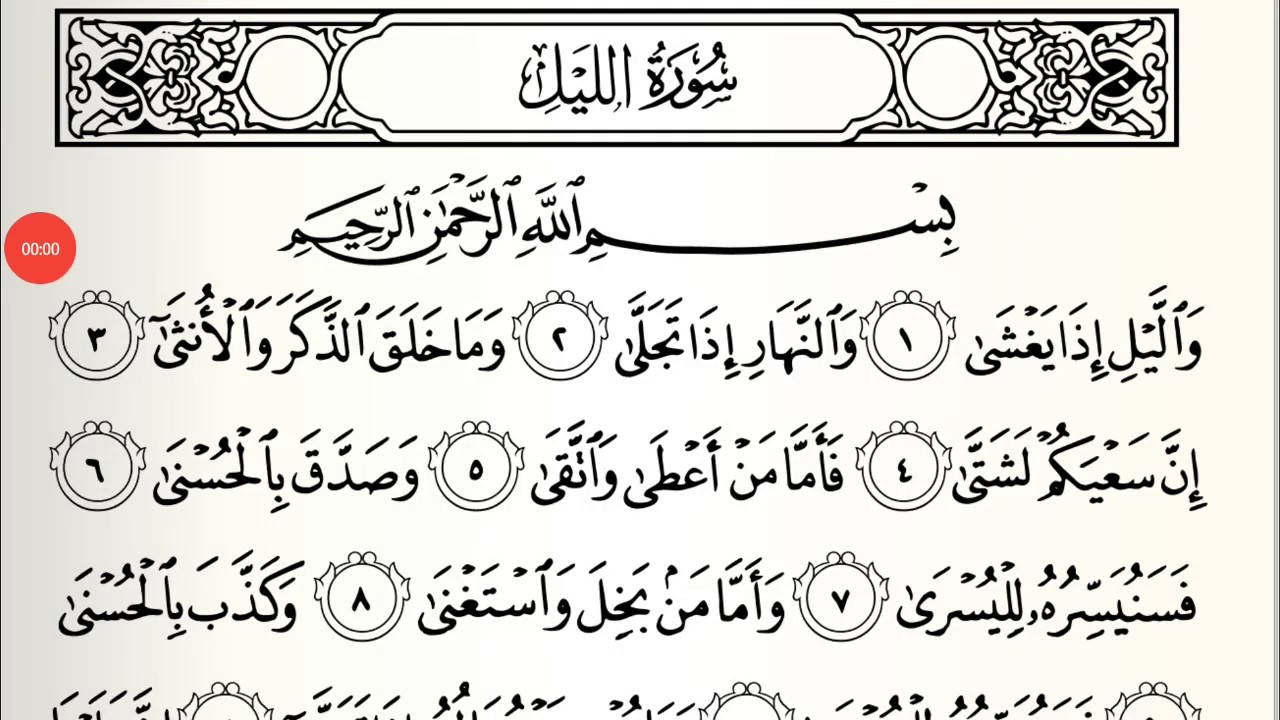 سُورَةُ اللَّيْلِ
بِسْمِ ٱللَّهِ ٱلرَّحْمَٰنِ ٱلرَّحِيمِ
00:00
وَٱلَّيْلِ إِذَا يَغْشَىٰ ١ وَٱلنَّهَارِ إِذَا تَجَلَّىٰ ٢ وَمَا خَلَقَ ٱلذَّكَرَ وَٱلْأُنثَىٰٓ ٣
إِنَّ سَعْيَكُمْ لَشَتَّىٰ ٤ فَأَمَّا مَنْ أَعْطَىٰ وَٱتَّقَىٰ ٥ وَصَدَّقَ بِٱلْحُسْنَىٰ ٦
فَسَنُيَسِّرُهُۥ لِلْيُسْرَىٰ ٧ وَأَمَّا مَنۢ بَخِلَ وَٱسْتَغْنَىٰ ٨ وَكَذَّبَ بِٱلْحُسْنَىٰ